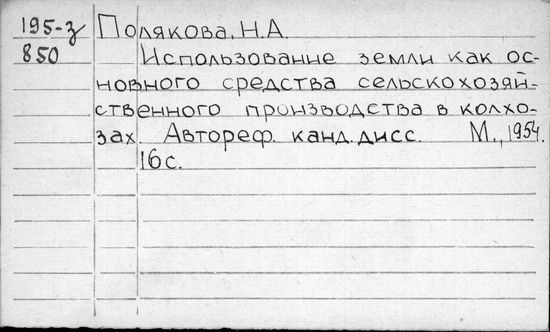 195-з Полякова, Н.А.
850 Использование земли как ос-
новного средства сельскохозяй-
ственного производства в колхо-
зах. Автореф. канд. дисс. М., 1954.
16с.